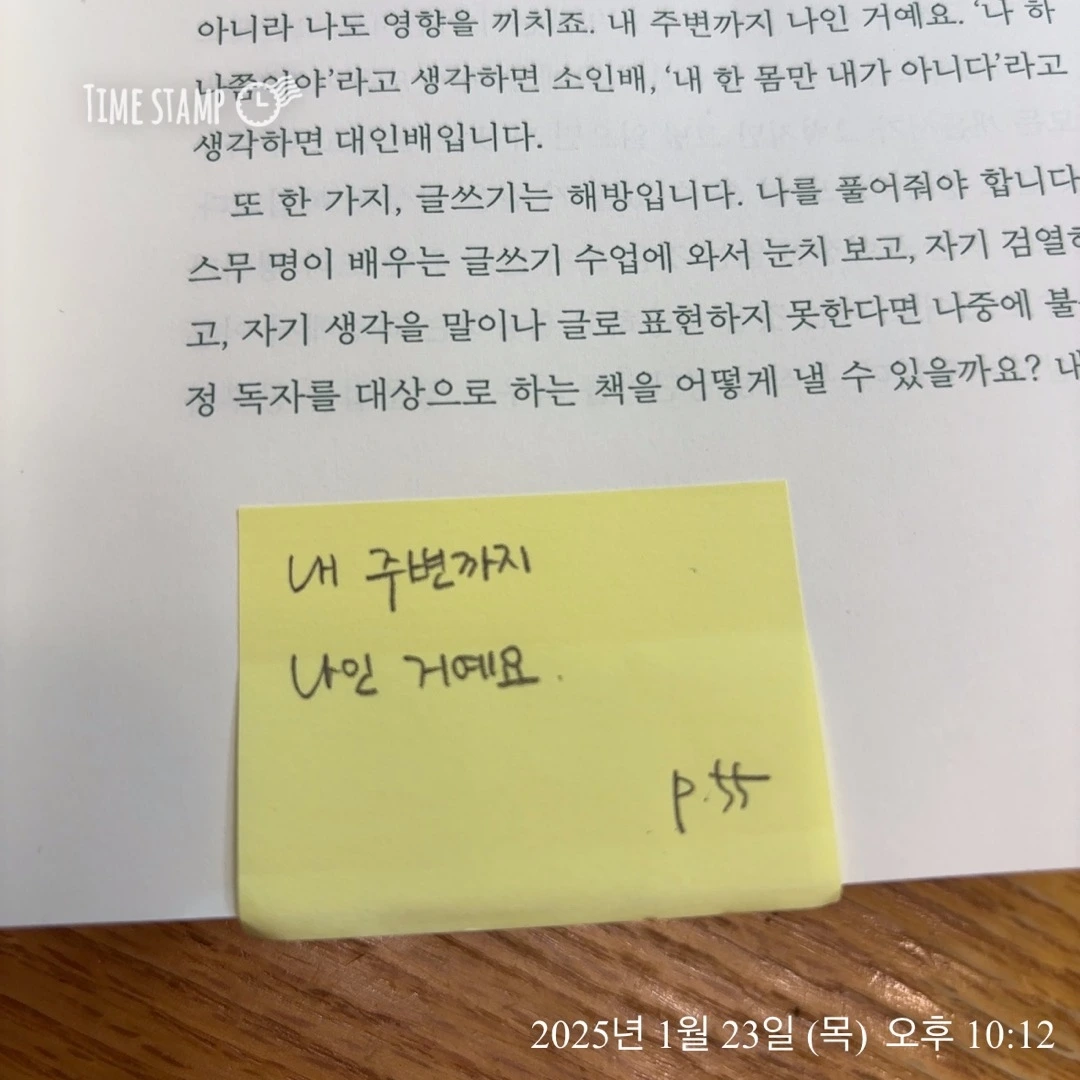 아니라 나도 영향을 끼치죠. 내 주변까지 나인 거예요. ‘나 하
TIME STAMP
생각하면 소인배, ‘내 한 몸만 내가 아니다’라고
생각하면 대인배입니다.
또 한 가지, 글쓰기는 해방입니다. 나를 풀어줘야 합니다
스무 명이 배우는 글쓰기 수업에 와서 눈치 보고, 자기 검열하
고, 자기 생각을 말이나 글로 표현하지 못한다면 나중에 불
정 독자를 대상으로 하는 책을 어떻게 낼 수 있을까요? 내
내 주변까지
나인 거예요.
p.55
2025년 1월 23일 (목) 오후 10:12